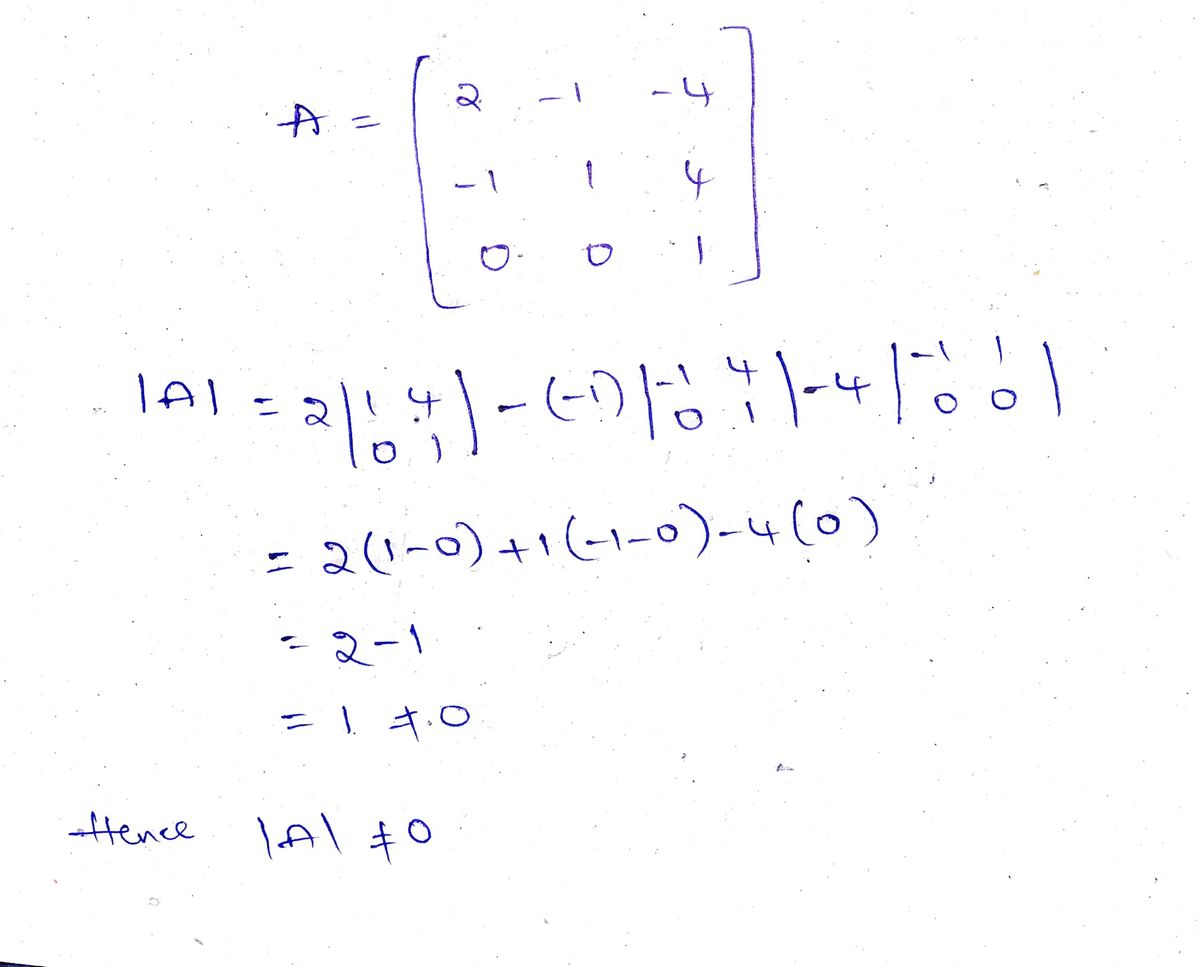 A = [ 2 -1 -4
-1 1 4
0 0 1 ]
|A| = 2 | 1 4 0 1 | - (-1) | -1 4 0 1 | - 4 | -1 1 0 0 |
= 2(1-0) + 1(-1-0) - 4(0)
= 2-1
= 1 ≠ 0
Hence |A| ≠ 0